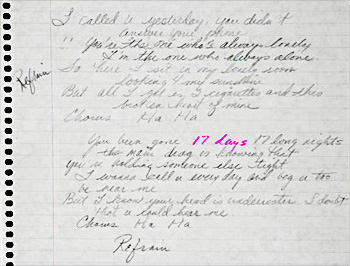 I called u yesterday, you didn't
answer your phone
!! You're the one who's always lonely
I'm the one who's always alone.
So here I sit in my lonely room
looking 4 my sunshine
But all I is 2 cigarettes and this
broken heart of mine
Chorus Ha Ha
Refrain
You been gone 17 days 17 long nights
the main drag is knowing that
you're holding someone else tight
I wanna call u everyday and beg u 2
be near me
But I know your head is underwater I doubt
that u could hear me
Chorus Ha Ha
Refrain